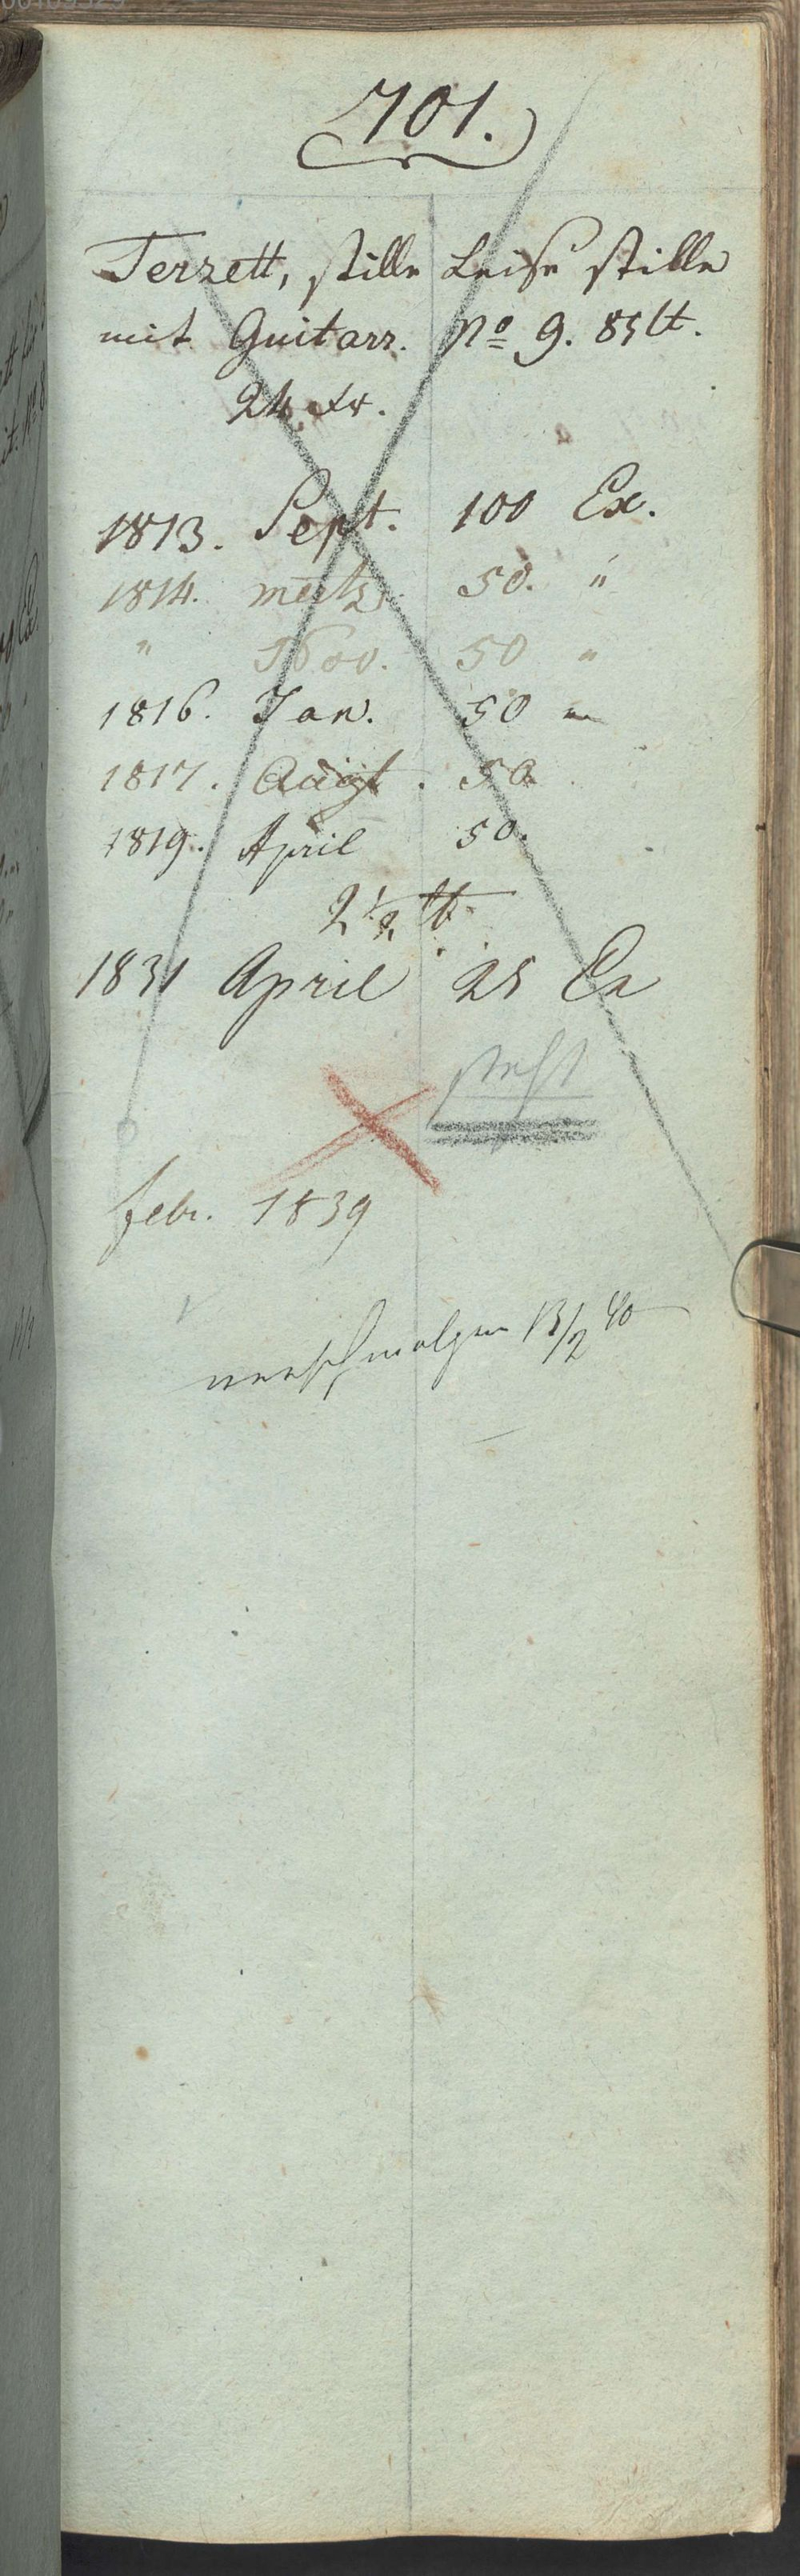 701.
Terzett, stille Leise stille
mit Guitarr. No 9. 85 lt.
24 Xr.
1813. Sept. 100 Ex.
1814. mertz. 50. "
" Nov. 50 "
1816. Jan. 50 "
1817. Augt. 50
1819. April 50.
2 1/2 lb.
1831 April 25 Ex
steht
febr. 1839
verschmolzen 13/2 40